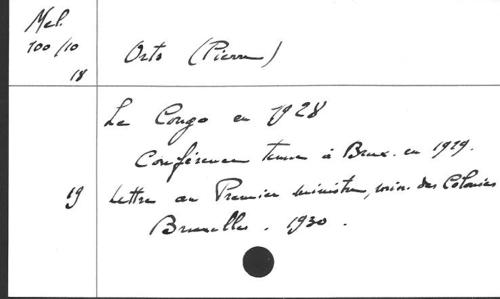 Mel.
100/10
18
Orts (Pierre)
Le Congo en 1928
Conférence tenue à Brux. en 1929.
19 Lettre au Premier Ministre, min. des Colonies
Bruxelles. 1930.